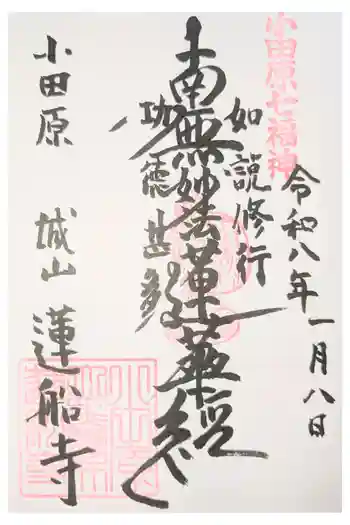 小田原七福神
令和八年一月八日
如説修行
南無妙法蓮華経
功徳甚多
小田原 城山 蓮船寺